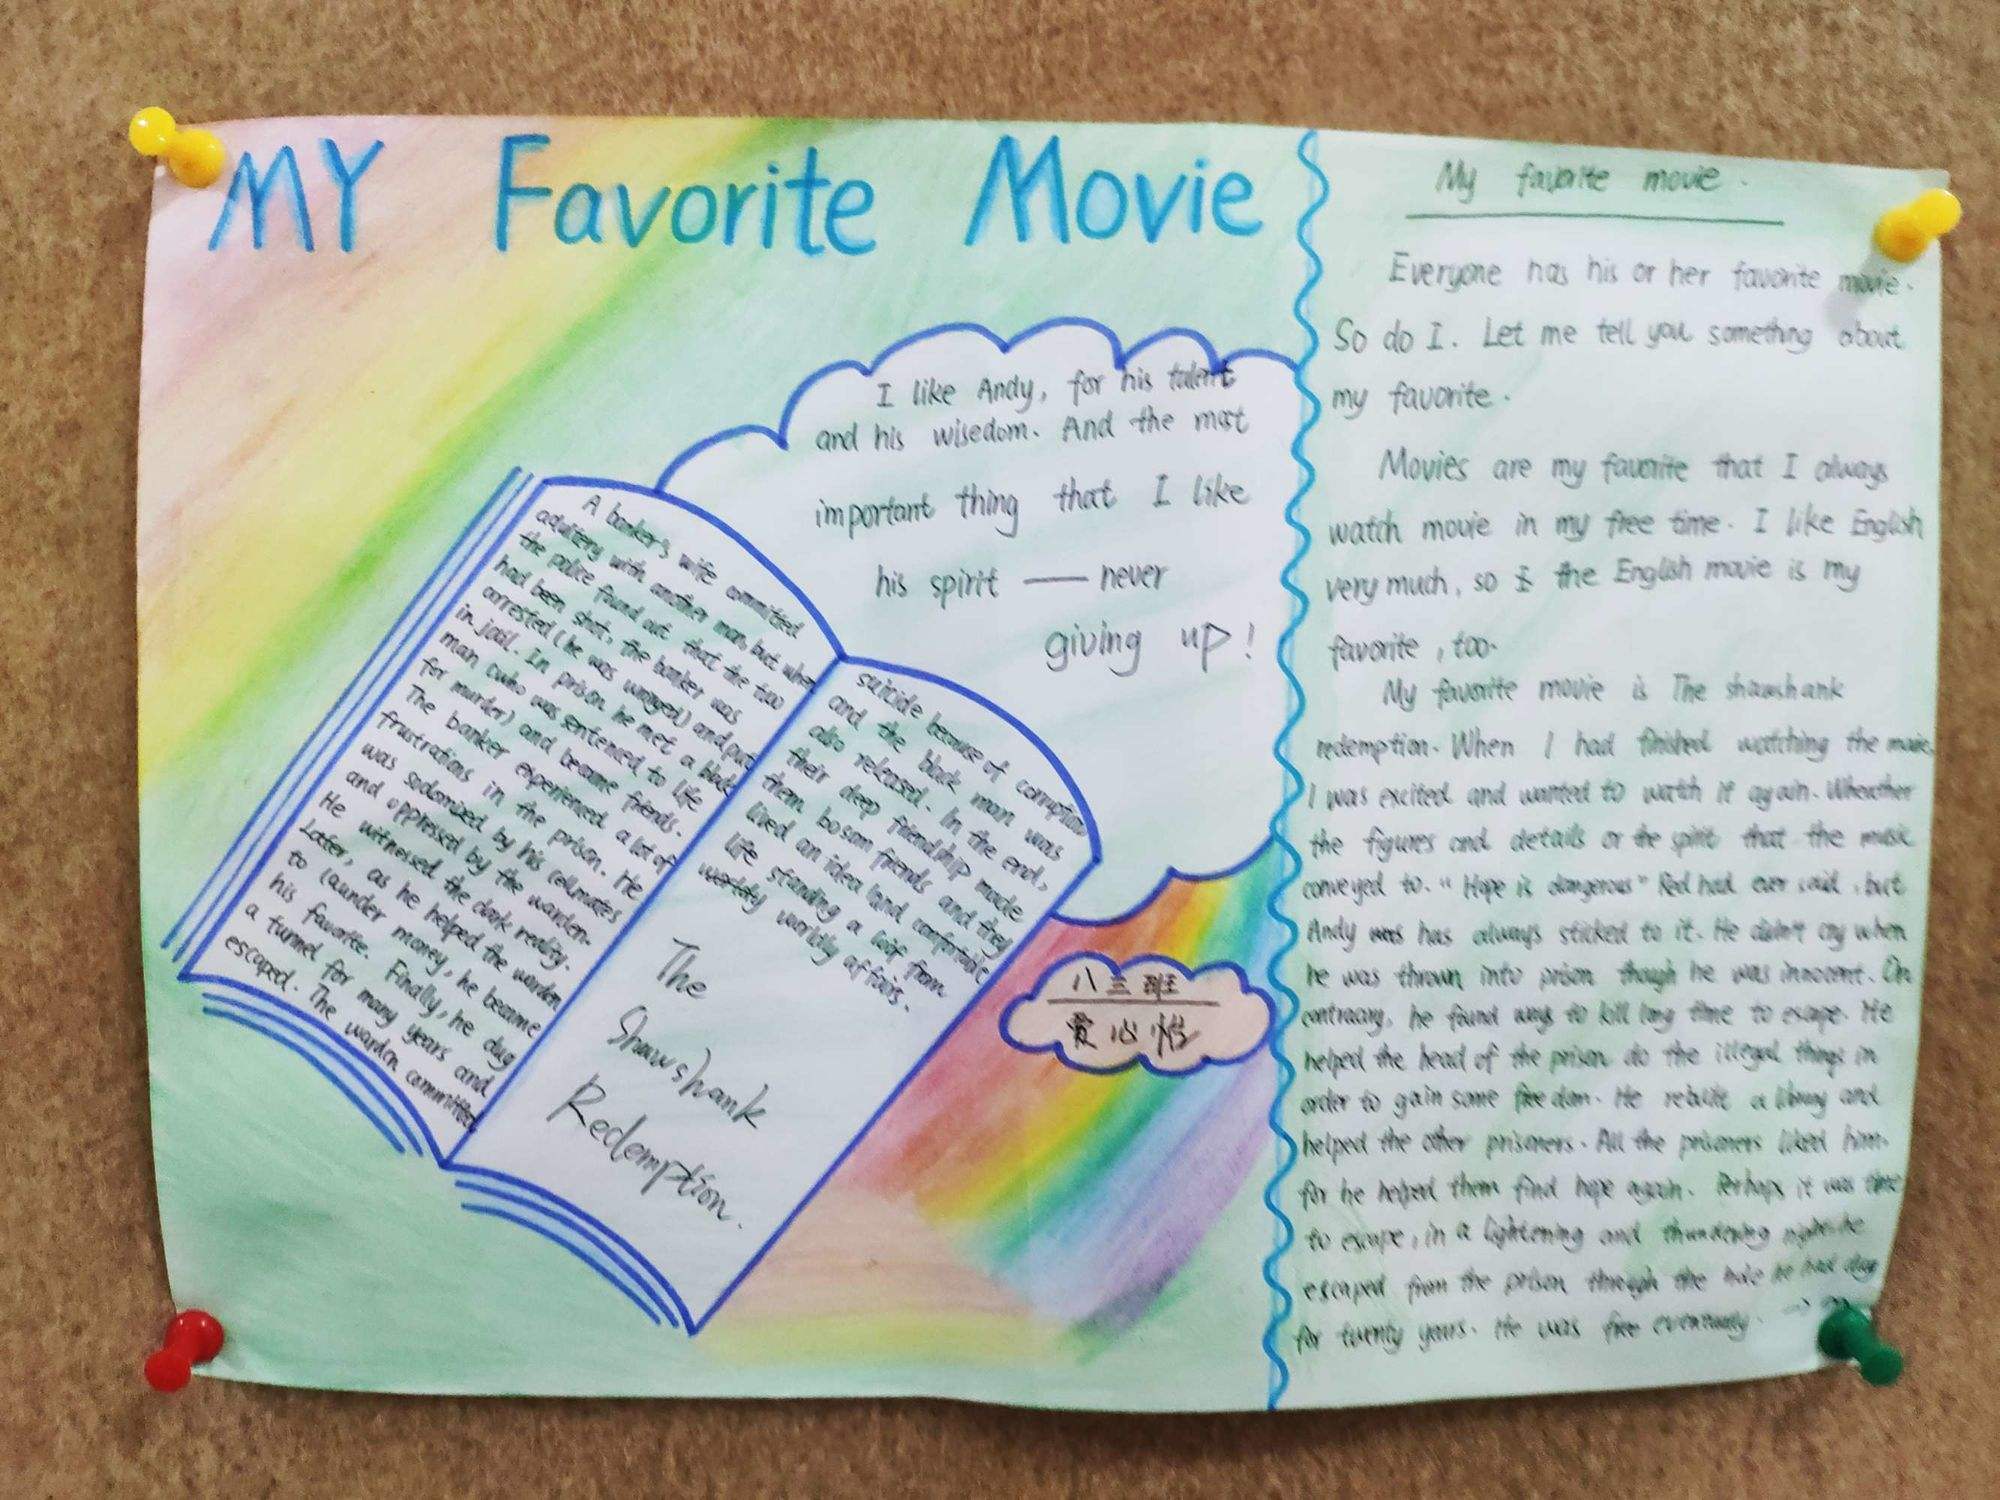 MY Favorite Movie
I like Andy, for his talent
and his wisedom. And the most
important thing that I like
his spirit —— never
giving up!
A banker's wife committed
adultery with another man, but when
the police found out that the two
had been shot, the banker was
arrested (he was wronged) and put
in jail. In prison he met a black
man (who was sentenced to life
for murder) and became friends.
The banker experienced a lot of
frustrations in the prison. He
was sodomized by his cellmates
and oppressed by the warden.
He witnessed the dark reality.
Later, as he helped the warden
to launder money, he became
his favorite. Finally, he dug
a tunnel for many years and
escaped. The warden committed
suicide because of corruption
and the black man was
also released. In the end,
their deep friendship made
them bosom friends and they
lived an idea land comfortable
life standing a loof from
worldly affairs.
The
Shawshank
Redemption.
八三班
My favorite movie.
Everyone has his or her favorite movie.
So do I. Let me tell you something about
my favorite.
Movies are my favorite that I always
watch movie in my free time. I like English
very much, so the English movie is my
favorite, too.
My favorite movie is The shawshank
redemption. When I had finished watching the movie,
I was excited and wanted to watch it again. Wheather
the figures and details or the spirit that the music
conveyed to. “Hope is dangerous” Red had ever said, but
Andy has always sticked to it. He didn't cry when
he was thrown into prison though he was innocent. On
contraary, he found ways to kill long time to escape. He
helped the head of the prison do the illegal things in
order to gain some freedom. He rebuilt a library and
helped the other prisoners. All the prisoners liked him.
for he helped them find hope again. Perhaps it was time
to escape, in a lightening and thundering night he
escaped from the prison through the hole he had dug
for twenty years. He was free eventually.